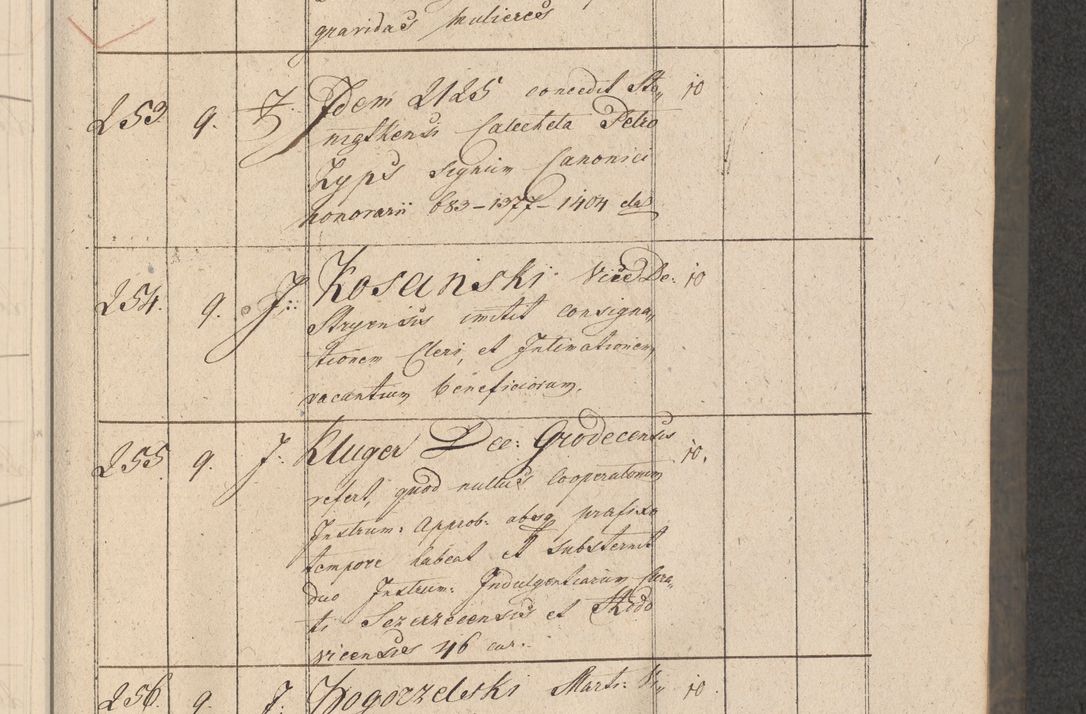 gravidas mulieres
253. 9. J. Idem 2125 concedit Sta„ 10
Catecheta Petro
Zyps signum Canonici
honorarii 683–1377–1404 elab
254. 9. J: Kosanski Vice De: 10
Stryensis mittit consigna„
tionem Cleri, et Intimationem
vacantium beneficiorum.
255 9. J. Kluger Dec: Grodecensis 10.
refert, quod nullus Cooperatorum
Instrum: approb: absq prafixo
tempore habeat et substernit
duo Instrum: Indulgentiarum Cura„
ti et Rodo
vicensis 46 cur.
256. 9. J. Zogorzelski Mart: V„ 10